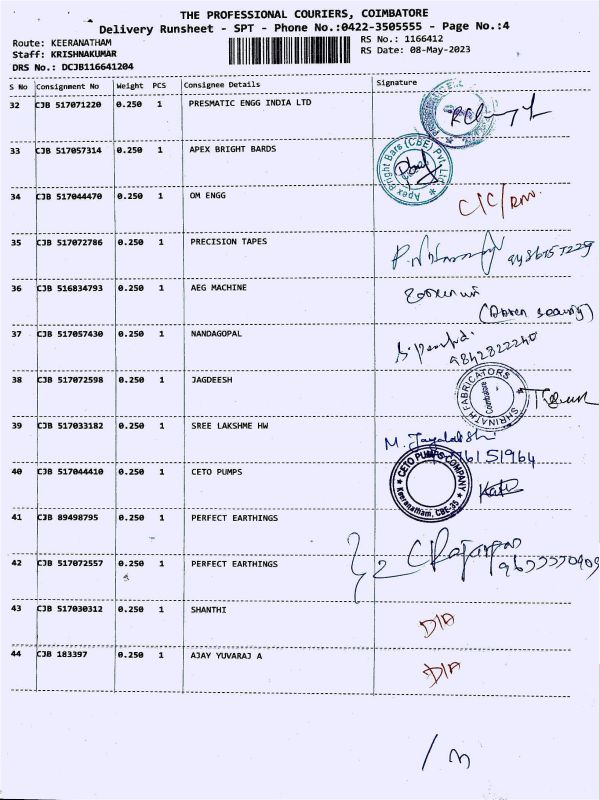 THE PROFESSIONAL COURIERS, COIMBATORE
Delivery Runsheet - SPT - Phone No.:0422-3505555 - Page No.:4
Route: KEERANATHAM
RS No.: 1166412
Staff: KRISHNAKUMAR
RS Date: 08-May-2023
DRS No.: DCJB116641204
S No Consignment No Weight PCS Consignee Details Signature
32 CJB 517071220 0.250 1 PRESMATIC ENGG INDIA LTD
33 CJB 517057314 0.250 1 APEX BRIGHT BARDS
Apex Bright Bars (CBE) Pvt. Ltd.
34 CJB 517044470 0.250 1 OM ENGG
35 CJB 517072786 0.250 1 PRECISION TAPES
36 CJB 516834793 0.250 1 AEG MACHINE
37 CJB 517057430 0.250 1 NANDAGOPAL
9842822240
38 CJB 517072598 0.250 1 JAGDEESH
SHRINATH FABRICATORS
Coimbatore
39 CJB 517033182 0.250 1 SREE LAKSHME HW
40 CJB 517044410 0.250 1 CETO PUMPS
CETO PUMPS COMPANY
Keeranatham, CBE-35
41 CJB 89498795 0.250 1 PERFECT EARTHINGS
42 CJB 517072557 0.250 1 PERFECT EARTHINGS
43 CJB 517030312 0.250 1 SHANTHI
D/A
44 CJB 183397 0.250 1 AJAY YUVARAJ A
D/A